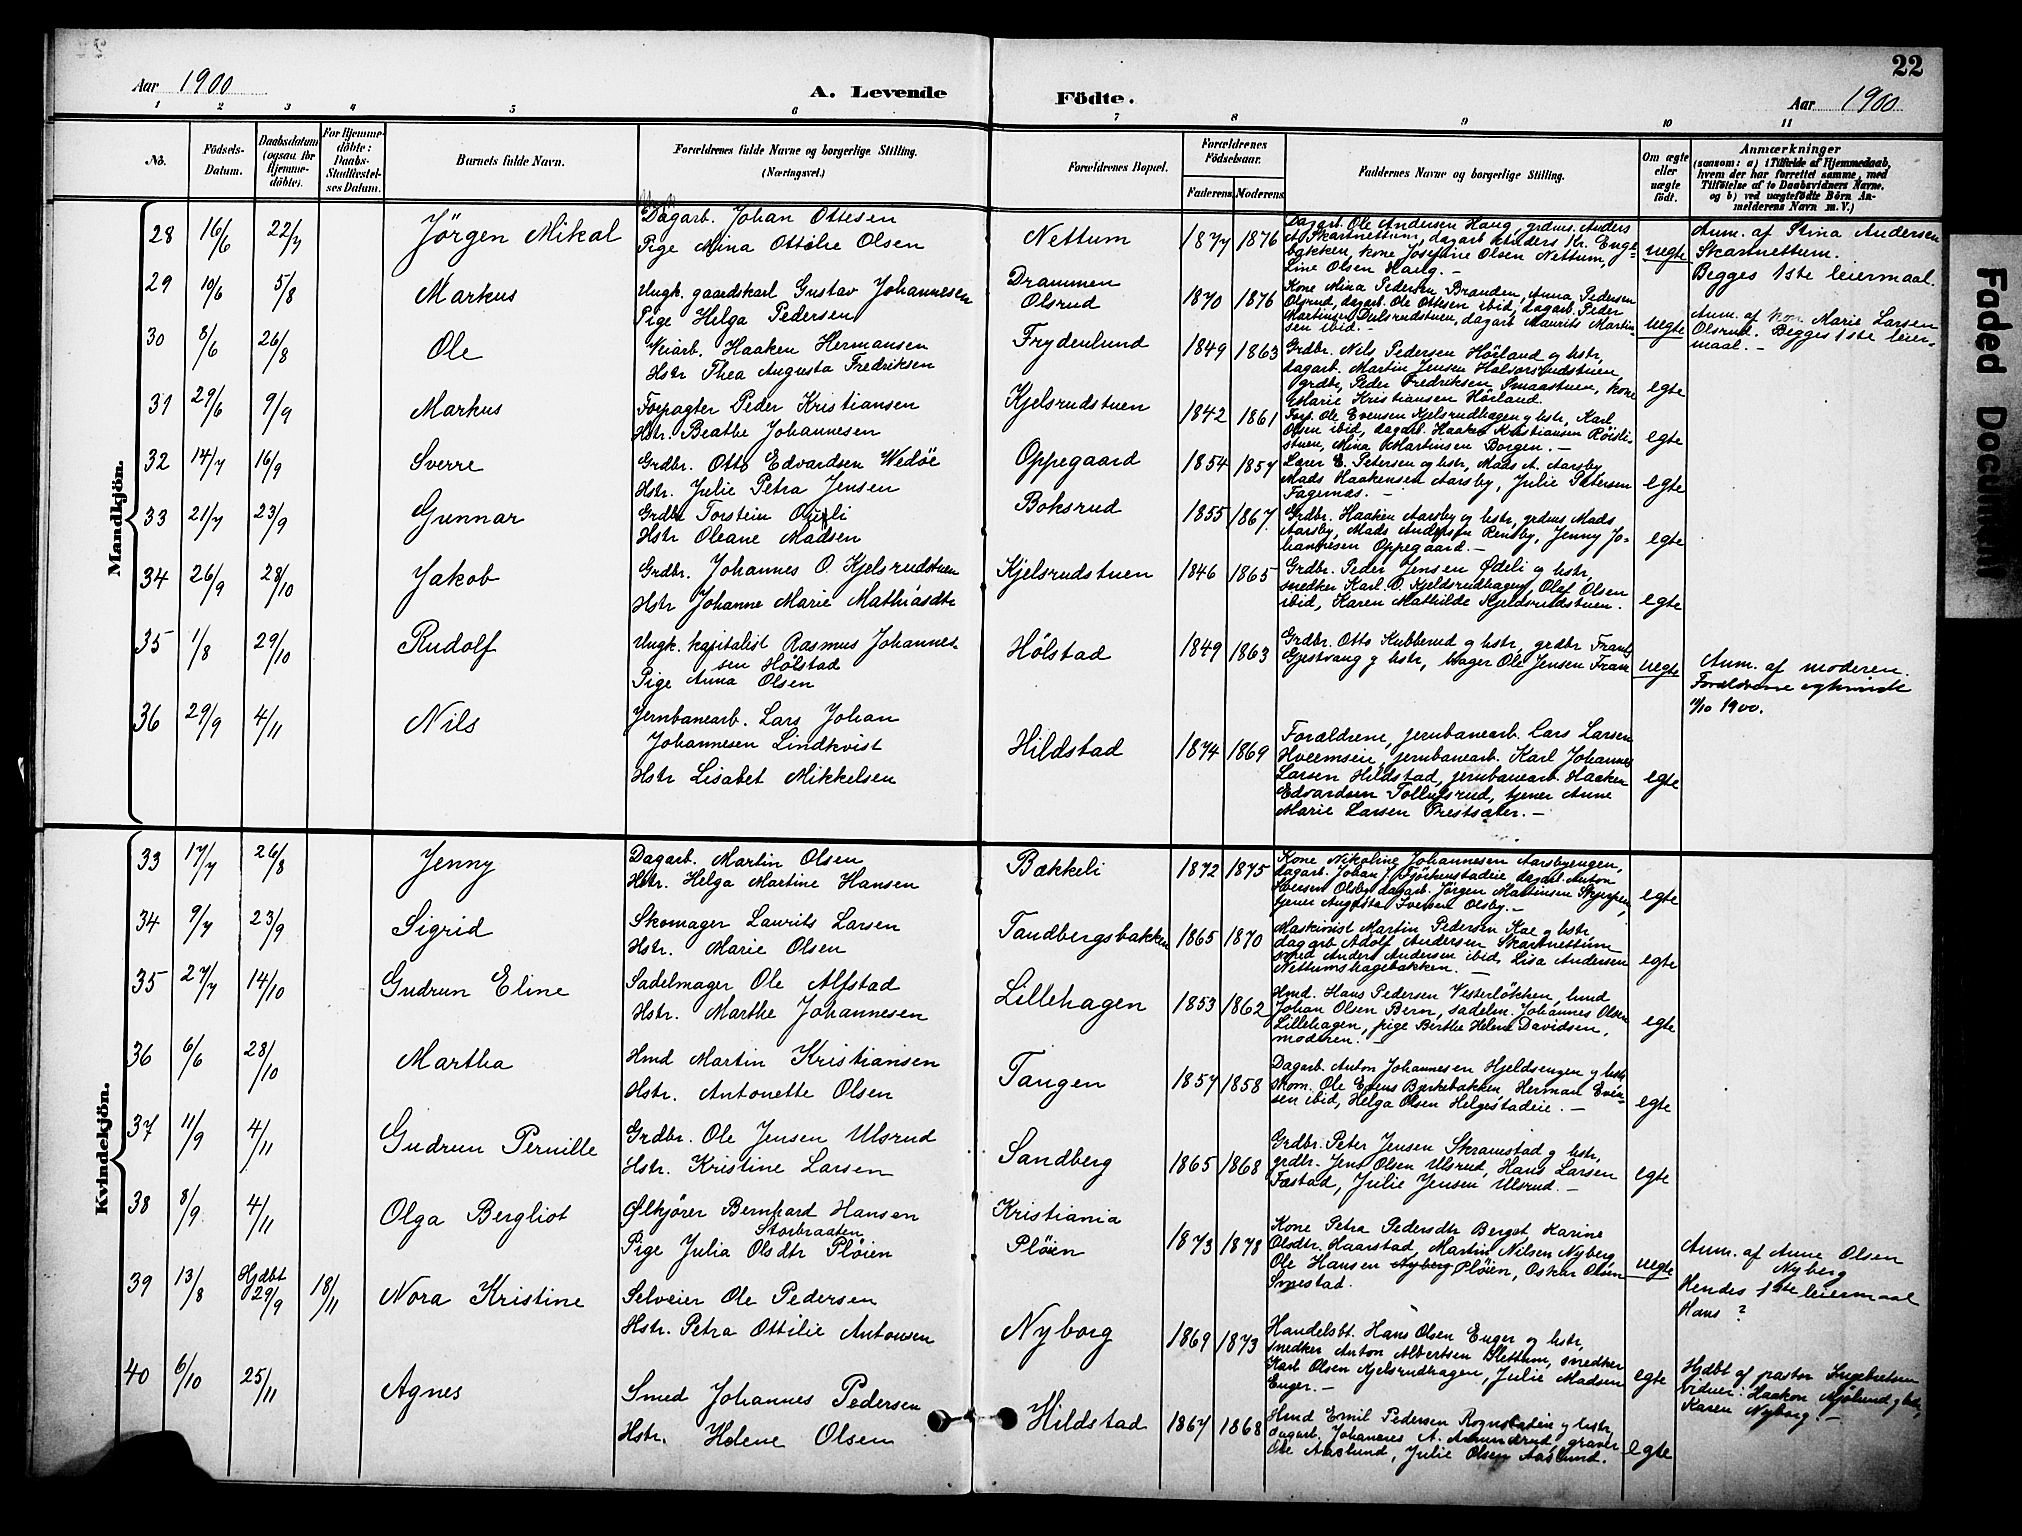 22
Aar 1900
A. Levende Födte.
Aar 1900
1 2 3 4 5 6 7 8 9 10 11
No.
Födsels-Datum.
Daabsdatum (ogsaa for Hjemmedöbte).
For Hjemmedöbte: Daabs-Stadfæstelses Datum.
Barnets fulde Navn.
Forældrenes fulde Navne og borgerlige Stilling.
(Næringsvei.)
Forældrenes Bopæl.
Forældrenes Födselsaar.
Faderens. Moderens.
Faddernes Navne og borgerlige Stilling.
Om ægte eller uægte födt.
Anmærkninger
(saasom: a) i Tilfælde af Hjemmedaab,
hvem der har forrettet samme, med
Tilföielse af to Daabsvidners Navne.
og b) ved uægtefödte Börn An-
melderens Navn m. V.)
Mandkjön.
28 16/6 22/7 Jörgen Mikal
Dagarb. Johan Ottesen
Pige Mina Ottilie Olsen
Nettum 1877 1876
Dagarb. Ole Andersen Haug, grdms. Anders
A. Skartnettum, dagarb. Anders Kr. Enge-
bakken, kone Josefine Olsen Nettum,
Line Olsen Haug. -
uegte
Anm. af Stina Andersen
Skartnettum.
Begges 1ste leiermaal.
29 10/6 5/8 Markus
Ungk. gaardskarl Gustav Johannesen
Pige Helga Pedersen
Drammen
Olsrud 1870 1876
Kone Mina Pedersen Branden, Anna Pedersen
Olsrud, dagarb. Ole Ottesen ibid, dagarb. Peder
Martinsen Dulsrudstuen, dagarb Maurits Martin-
sen ibid. -
uegte
Anm. af kone Marie Larsen
Olsrud. Begges 1ste leier-
maal. -
30 8/6 26/8 Ole
Veiarb. Haaken Hermansen
Hstr Thea Augusta Fredriksen
Frydenlund 1849 1863
Grdbr. Nils Pedersen Hörland og hstr,
dagarb. Martin Jensen Halsorsrudstuen,
grdbr, Peder Fredriksen Smaastuen, kone
Marie Kristiansen Hörland.
egte
31 29/6 9/9 Markus
Forpagter Peder Kristiansen
Hstr. Beathe Johannesen
Kjelsrudstuen 1842 1861
Forp. Ole Evensen Kjelsrudhagen og hstr, Karl
Olsen ibid, dagarb. Haaken Kristiansen Röisli-
stuen, Mina Martinsen Borgen. -
egte
32 14/7 16/9 Sverre
Grdbr. Otto Edvardsen Wedöe
Hstr. Julie Petra Jensen
Oppegaard 1854 1857
Lærer E. Petersen og hstr, Mads A. Aarsby,
Mads Haakensen Aarsby, Julie Petersen
Fagernæs. -
egte
33 21/7 23/9 Gunnar
Grdbr Torstein
Hstr Oleane Madsen
Boksrud 1855 1867.
Grdbr. Haaken Aarsby og hstr, grdms Mads
Aarsby, Mads Andersen Rensby, Jenny Jo-
hannesen Oppegaard. -
egte
34 26/9 28/10 Jakob
Grdbr. Johannes O. Kjelsrudstuen
Hstr Johanne Marie Mathiasdtr
Kjelsrudstuen 1846 1865
Grdbr. Peder Jensen Ödeli og hstr,
snedker Karl O. Kjeldsrudhagen, Olef Olsen
ibid, Karen Mathilde Kjeldsrudstuen.
egte
35 1/8 29/10 Rudolf
Ungk. kapitalist Rasmus Johannes-
sen Hölstad
Pige Anna Olsen
Hölstad 1849 1863
Grdbr. Otto Kubberud og hstr, grdbr Frants
Gjestvang og hstr, bager Ole Jensen Fram
uegte
Anm. af moderen.
Forældrene
1900.
36 29/9 4/11 Nils
Jernbanearb. Lars Johan
Johannesen Lindkvist
Hstr Lisabet Mikkelsen
Hildstad 1874 1869
Forældrene, jernbanearb. Lars Larsen
Hveemseie, jernbanearb. Karl Johannes
Larsen Hildstad, jernbanearb. Haaken
Edvardsen Tollefsrud, tjener Anne
Marie Larsen Prestsæter. -
egte
Kvindekjön.
33 17/7 26/8 Jenny
Dagarb. Martin Olsen
Hstr. Helga Martine Hansen
Bækkeli 1872 1875
Kone Nikoline Johannesen Aarsbyengen,
dagarb. Johan J. Fjörkenstadeie dagarb. Anton
Iversen Olsby, dagarb. Jörgen Martinsen Skjeppen,
tjener Augusta Iversen Olsby. -
egte
34 9/7 23/9 Sigrid
Skomager Laurits Larsen
Hstr. Marie Olsen
Tandbergsbakken 1865 1870
Maskinist Martin Pedersen Kae og hstr,
dagarb Adolf Andersen Skartnettum
smed Anders Andersen ibid, Lisa Andersen
Nettumshagebakken. -
egte
35 27/7 14/10 Gudrun Eline
Sadelmager Ole Alfstad
Hstr. Marthe Johannesen
Lillehagen 1853 1862
Hmd. Hans Pedersen Vesterlökken, hmd
Johan Olsen Bern, sadelm. Johannes Olsen
Lillehagen, pige Berthe Helene Davidsen,
moderen. -
egte
36 6/6 28/10 Martha
Hmd Martin Kristiansen
Hstr. Antonette Olsen
Tangen 1857 1858
Dagarb. Anton Johannesen Hjeldsengen og hstr
skom. Ole Evens Bjerkebakken, Herman Even-
sen ibid, Helga Olsen Helgestadeie. -
egte
37 11/9 4/11 Gudrun Pernille
Grdbr. Ole Jensen Ulsrud
Hstr. Kristine Larsen
Sandberg 1865 1868
Grdbr. Peter Jensen Skramstad og hstr,
grdbr. Jens Olsen Ulsrud, Hans Larsen
Fæstad, Julie Jensen Ulsrud. -
egte
38 8/9 4/11 Olga Bergliot
Ølkjörer Bernhard Hansen
Storbraaten
Pige Julia Olsdtr Plöien
Kristiania
Plöien 1873 1878
Kone Petra Pedersdtr Berget, Karine
Olsdtr. Haarstad, Martin Nilsen Nyberg
Ole Hansen Nyberg Plöien, Oskar Olsen
Smestad.
uegte
Anm. af Anne Olsen
Nyberg
Hendes 1ste leiermaal
Hans ?
39 13/8 Hjdbt 29/9 18/11 Nora Kristine
Selveier Ole Pedersen
Hstr. Petra Ottilie Antonsen
Nyborg 1869 1873
Handelsbt. Hans Olsen Enger og hstr,
snedker Anton Albertsen Slettum, snedker
Karl Olsen Kjelsrudhagen, Julie Madsen
Enger. -
egte
Hjdbt af pastor
vidner: Haakon Mjölund g hstr,
Karen Nyborg. -
40 6/10 25/11 Agnes
Smed Johannes Pedersen
Hstr. Helene Olsen
Hildstad 1867 1868
Hmd Emil Pedersen Rognstadeie g hstr,
dagarb. Johannes A. Amundrud, graver
Ole Aaslund, Julie Olsen Aaslund.
egte
Faded Document